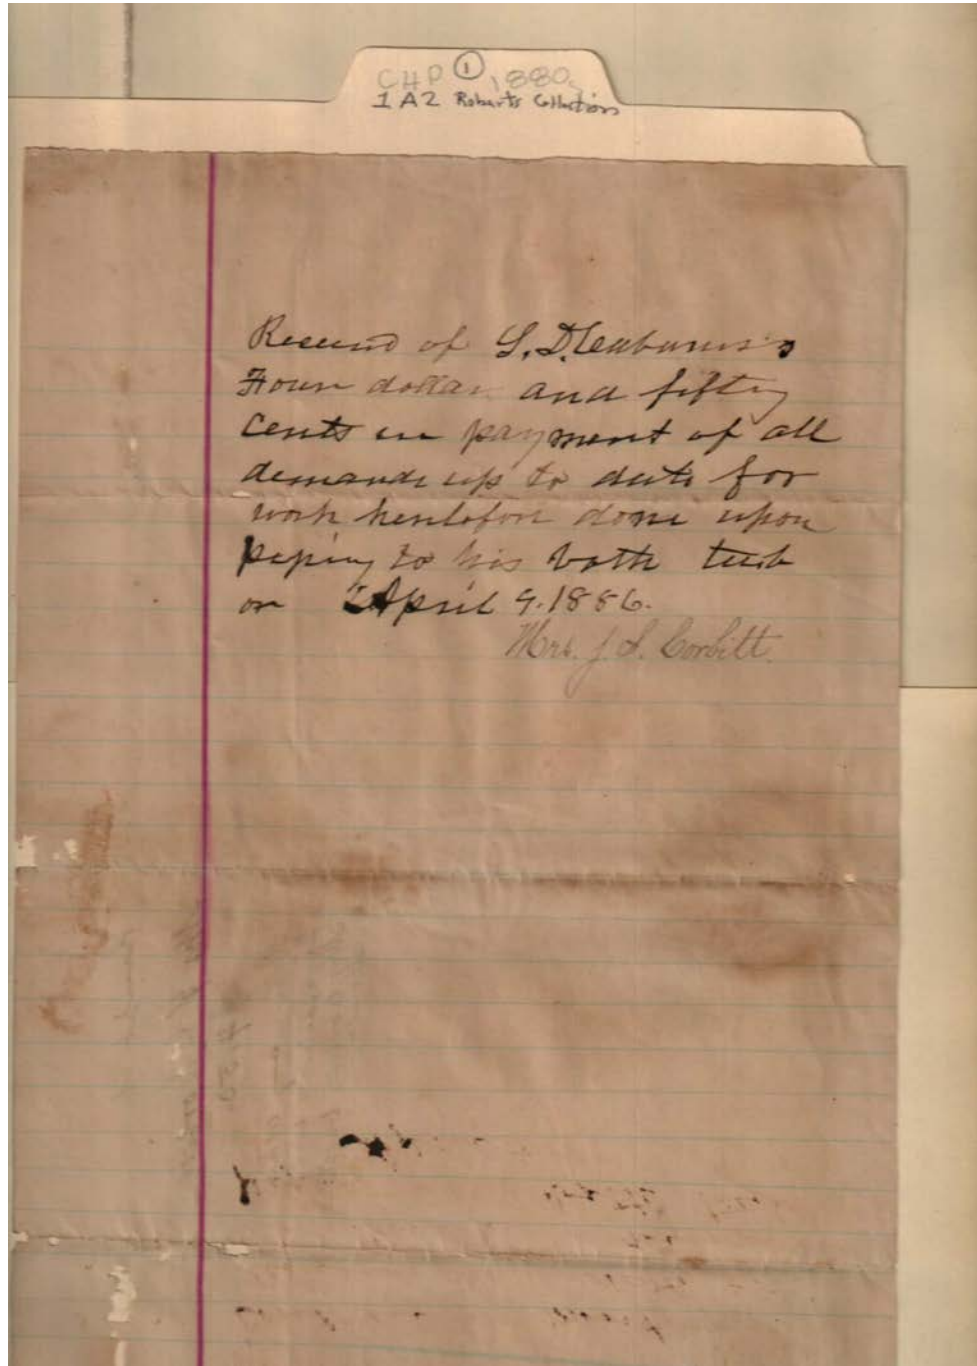 CHP ① 1880s
1A2 Roberts Collection
Received of S. D.
Four dollar and fifty
Cents in payment of all
demands up to date for
work heretofore done upon
piping to his bath tub
on April 9. 1886.
Mrs. J. S. Corbitt.